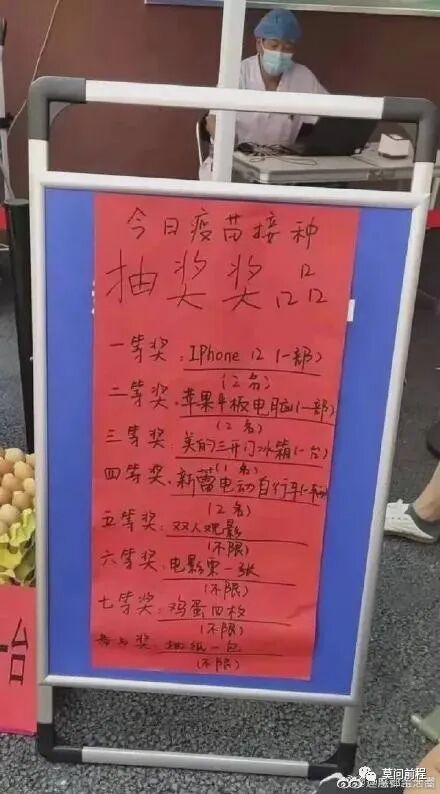 今日疫苗接种
抽奖奖品
一等奖：IPhone 12 (一部)
(2名)
二等奖：苹果平板电脑(一部)
(2名)
三等奖：美的三开门冰箱(一台)
(1名)
四等奖：新蕾电动自行车(一
(2名)
五等奖：双人观影
(不限)
六等奖：电影票一张
(不限)
七等奖：鸡蛋四枚
(不限)
参与奖：抽纸一包
(不限)
台
莫问前程